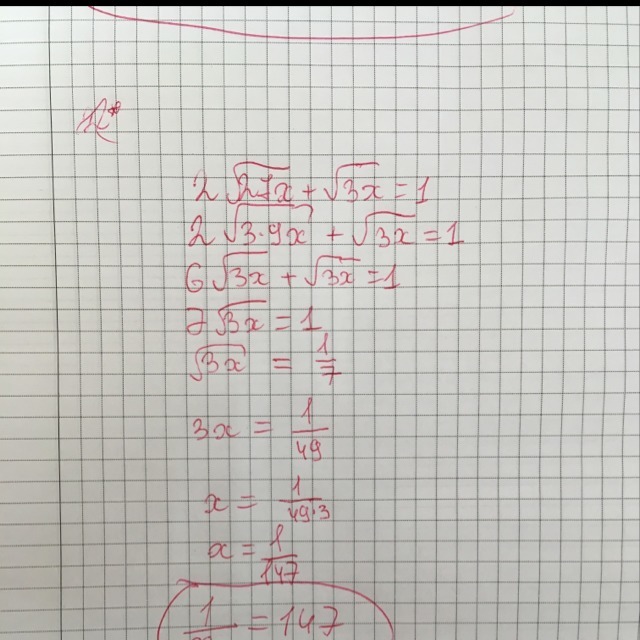 2√27x + √3x = 1
2√3·9x + √3x = 1
6√3x + √3x = 1
7√3x = 1
√3x = 1/7
3x = 1/49
x = 1/49·3
x = 1/147
= 147